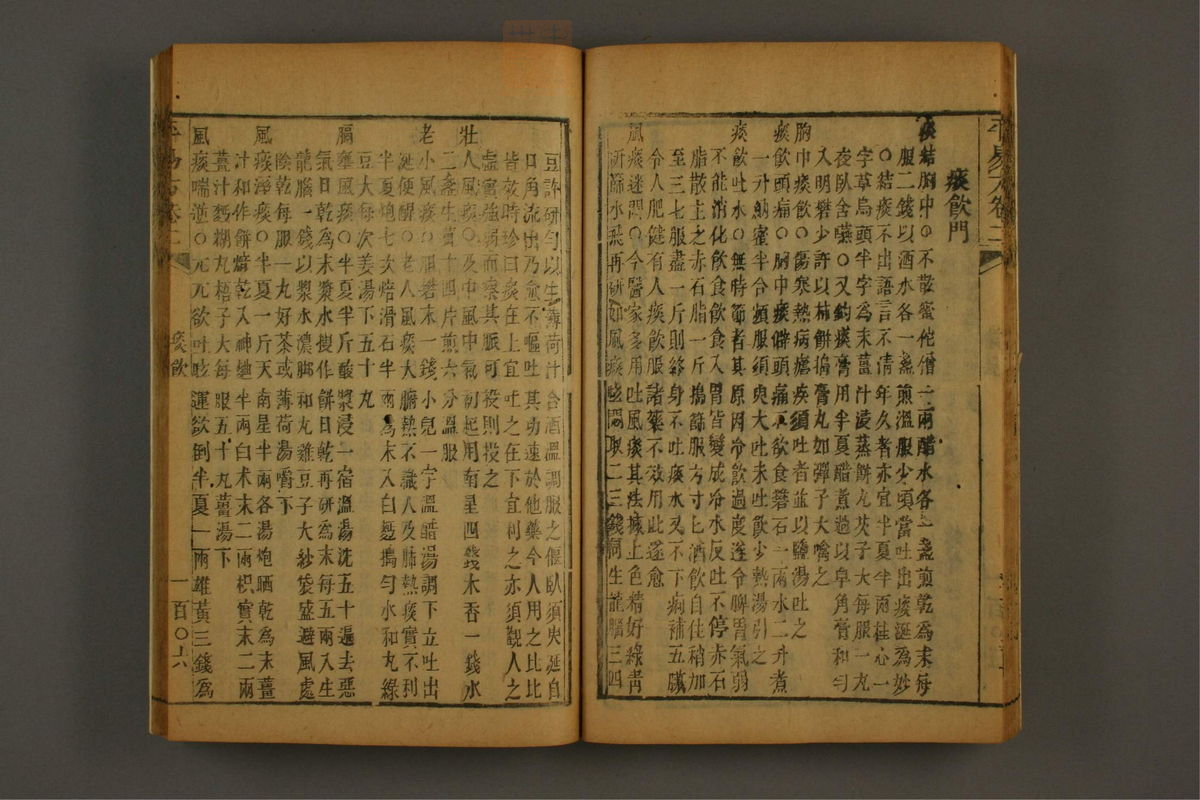 痰飲門
痰結胸中〇不散蜜佗僧一兩醋水各一盞煎乾為末每
服二錢以酒水各一盞煎溫服少頃當吐出痰涎為妙
〇結痰不出語言不清年久者亦宜半夏半兩桂心一
字草烏頭半字為末薑汁浸蒸餅丸芡子大每服一丸
夜臥含嚥〇又鈎痰膏用半夏醋煮過以皁角膏和勻
入明礬少許以柿餅搗膏丸如彈子大噙之
胸中痰飲〇傷寒熱病瘧疾須吐者並以鹽湯吐之
痰飲頭痛〇胸中痰澼頭痛不飲食礬石一兩水二升煮
一升納蜜半合頻服須臾大吐未吐飲少熱湯引之
痰飲吐水〇無時節者其原因冷飲過度遂令脾胃氣弱
不能消化飲食飲食入胃皆變成冷水反吐不停赤石
脂散主之赤石脂一斤搗篩服方寸匕酒飲自任稍加
至三七服盡一斤則終身不吐痰水又不下痢補五臟
令人肥健有人痰飲服諸藥不效用此遂愈
風痰迷悶〇今醫家多用吐風痰其法揀上色精好綠靑
研篩水飛再研如風痰眩悶取二三錢同生龍腦三四
豆許研勻以生薄荷汁合酒溫調服之偃臥須臾涎自
口角流出乃愈不嘔吐其功速於他藥今人用之比比
皆效時珍曰痰在上宜吐之在下宜利之亦須觀人之
虛實強弱而察其脈可役則投之
壯人風痰〇及中風中氣初起用南星四錢木香一錢水
二盞生薑十四片煎六分溫服
老小風痰〇服礬末一錢小兒一字溫醋湯調下立吐出
涎便醒〇老人風痰大腑熱不識人及肺熱痰實不利
半夏炮七文焙滑石半兩為末入白麪搗勻水和丸綠
豆大每次姜湯下五十丸
膈壅風痰〇半夏半斤酸漿浸一宿溫湯洗五十遍去惡
氣日乾為末漿水搜作餅日乾再研為末每五兩入生
龍腦一錢以漿水濃脚和丸雞豆子大紗袋盛避風處
陰乾每服一丸好茶或薄荷湯嚼下
風痰溼痰〇半夏一斤天南星半兩各湯炮晒乾為末薑
汁和作餅焙乾入神麯半兩白朮末二兩枳實末二兩
薑汁麪糊丸梧子大每服五十丸薑湯下
風痰喘逆〇兀兀欲吐眩運欲倒半夏一兩雄黃三錢為
痰飲
一百〇六